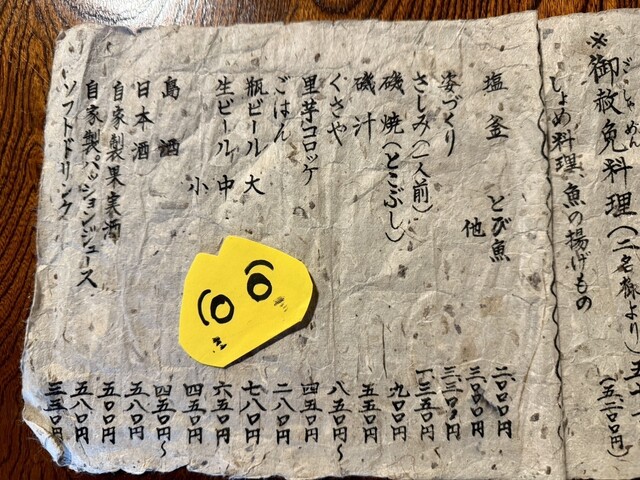 ごしゃめん
※御赦免料理(二名様より)五
(五、二〇〇円)
しょめ料理、魚の揚げもの
塩釜 とび魚 二〇〇〇円
他 三〇〇〇円
姿づくり 三三〇〇円
さしみ(一人前) 一三五〇円
磯焼(とこぶし) 九〇〇円
磯汁 五五〇円
くさや 八五〇円〜
里芋コロッケ 四五〇円
ごはん 二八〇円
瓶ビール 大 七八〇円
生ビール 中 六五〇円
小 四五〇円
島酒 四五〇円〜
日本酒 五八〇円
自家製果実酒 五〇〇円
自家製パッションジュース 五八〇円
ソフトドリンク 三三〇円